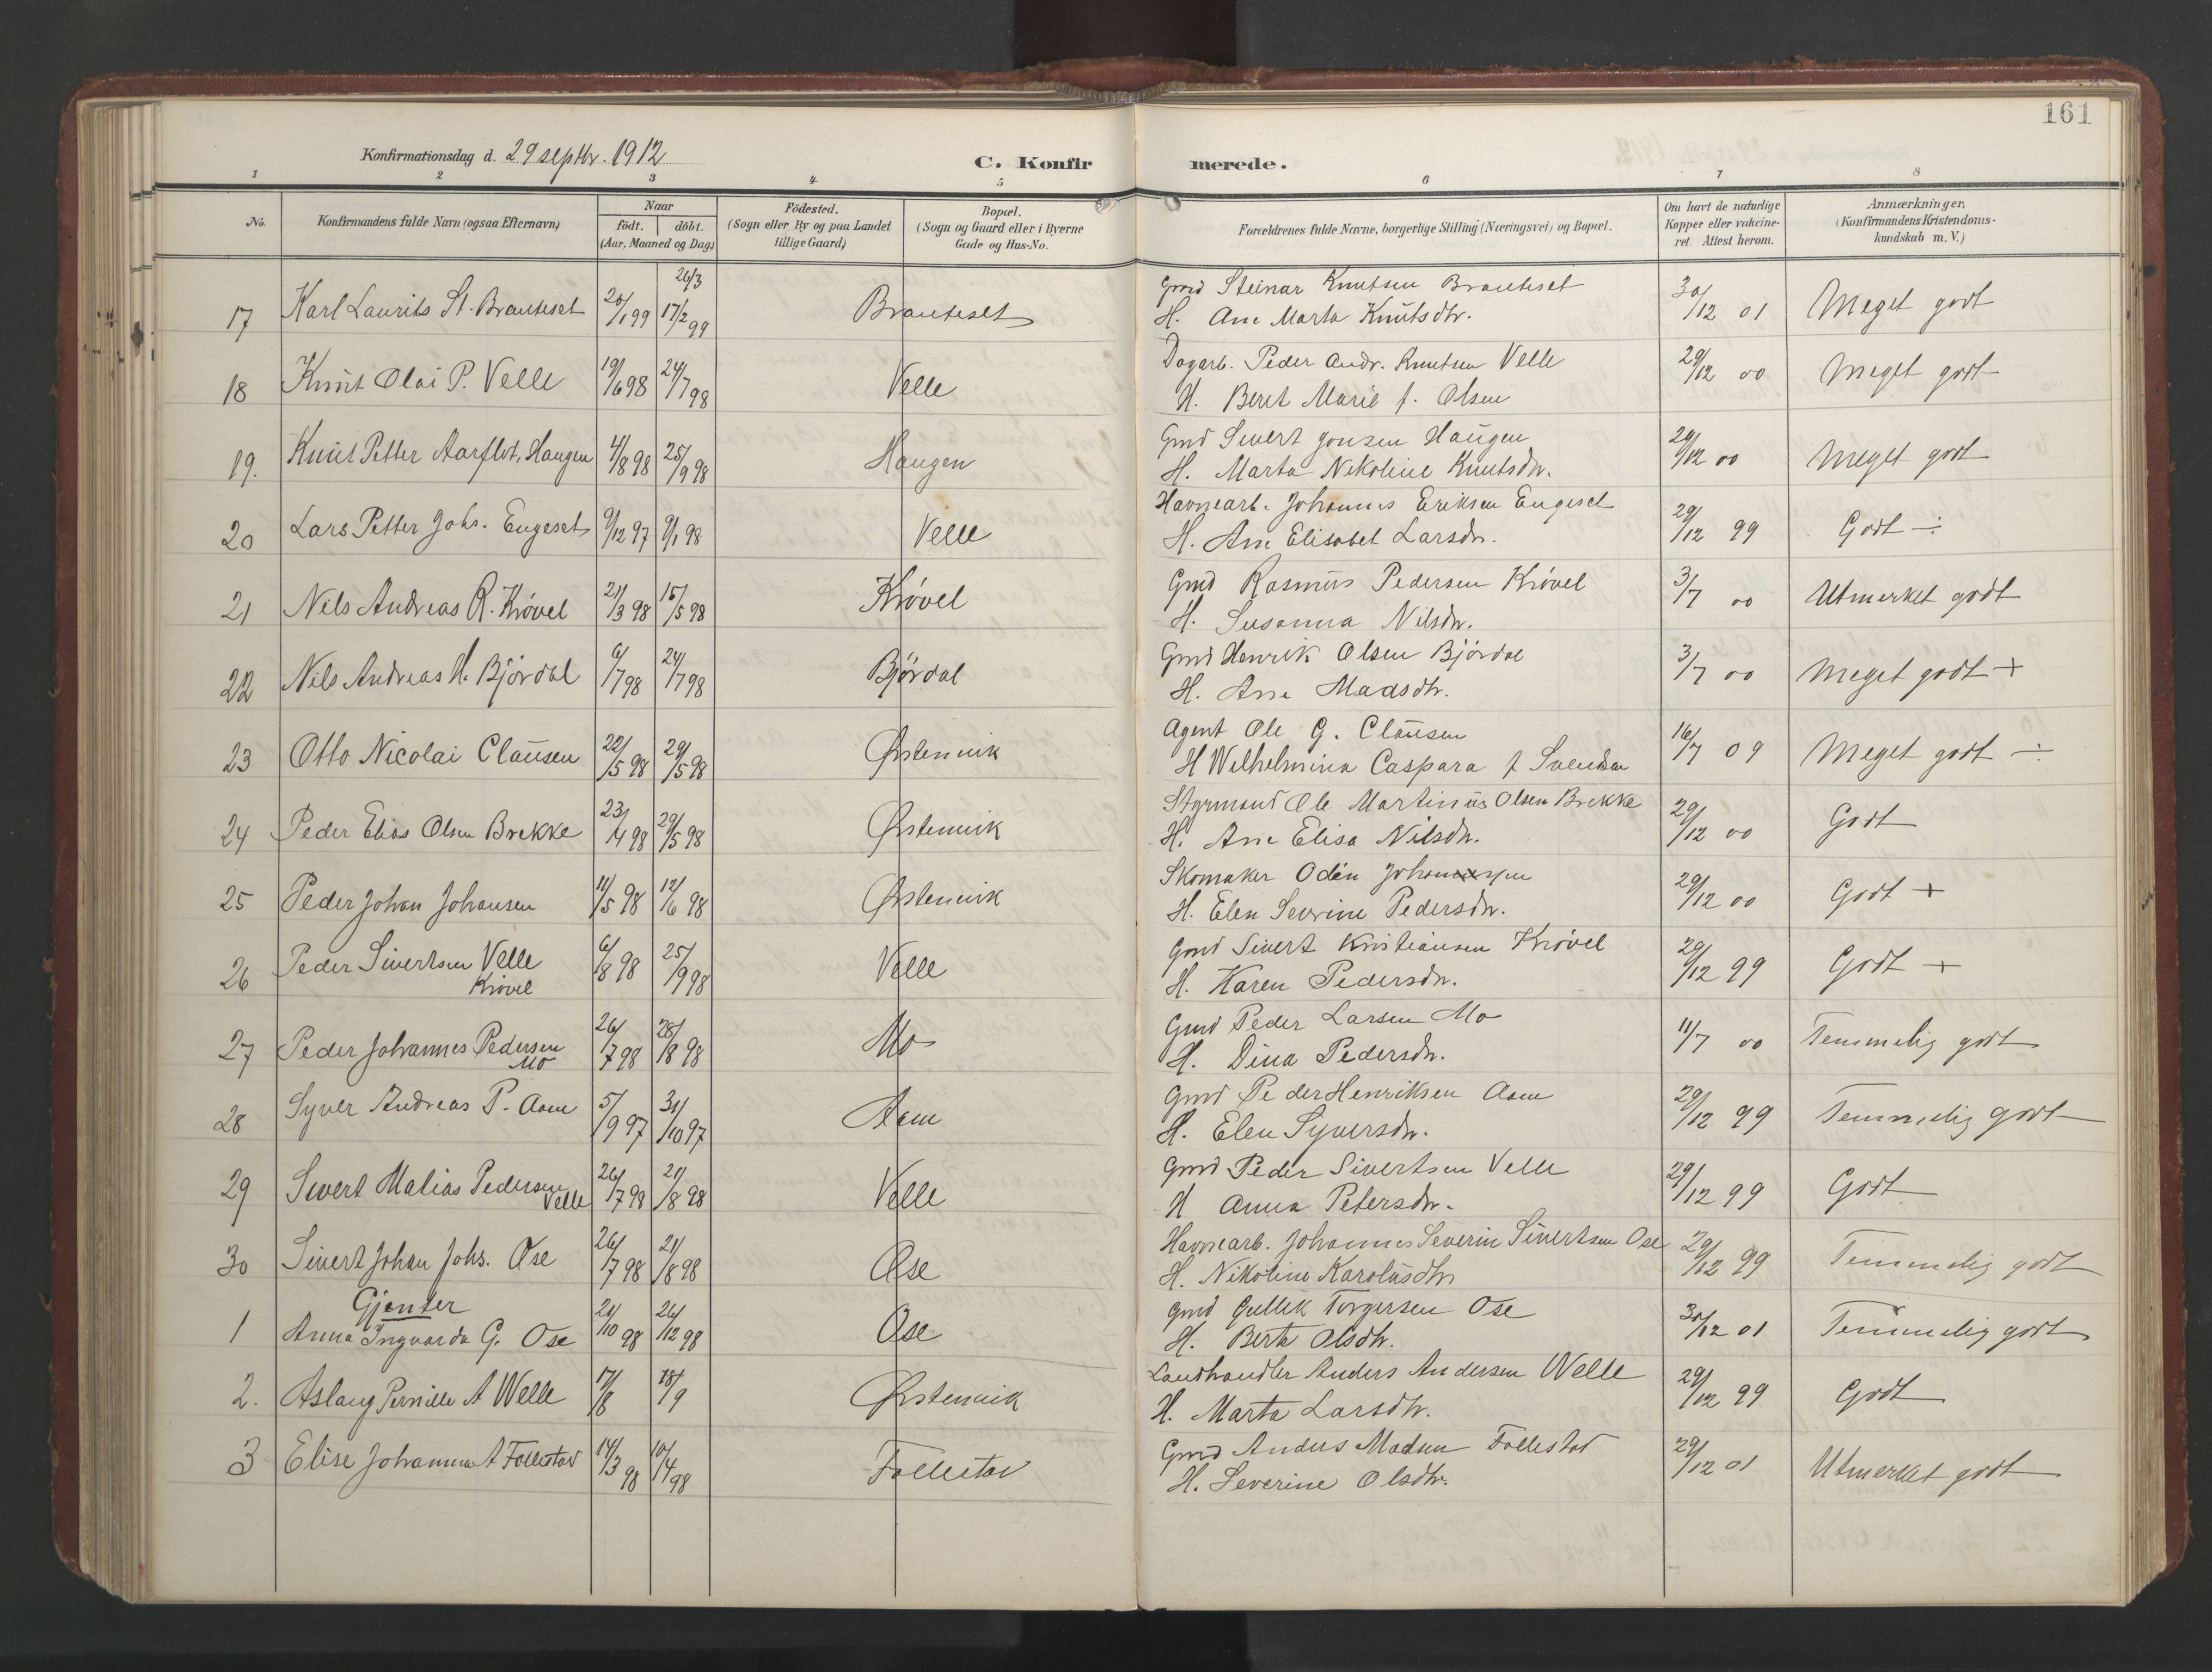 161
Konfirmationsdag d. 29 septbr. 1912
C. Konfirmerede.
1 2 3 4 5 6 7 8
No. | Konfirmandens fulde Navn (ogsaa Efternavn) | Naar født. døbt. (Aar, Maaned og Dag) | Födested. (Sogn eller By og paa Landet tillige Gaard) | Bopæl. (Sogn og Gaard eller i Byerne Gade og Hus-No. | Forældrenes fulde Navne, borgerlige Stilling (Næringsvei) og Bopæl. | Om havt de naturlige Kopper eller vakcineret. Attest herom. | Anmærkninger, (Konfirmandens Kristendomskundskab m. V.)
26/3
17 Karl Laurits St. Brauteset 20/1 99 17/2 99 Brauteset Gmd Steinar Knutsen Brauteset 30/12 01 Meget godt
H. Ane Marta Knutsdtr.
18 Knut Olai P. Velle 19/6 98 24/7 98 Velle Dagarb. Peder Andr. Knutsen Velle 29/12 00 Meget godt
H. Beret Marie f. Olsen
19. Knut Petter Aarflot, Haugen 4/8 98 25/9 98 Haugen Gmd Sivert Jonsen Haugen 29/12 00 Meget godt
H. Marta Nikoline Knutsdtr.
20 Lars Petter Johs. Engeset 9/12 97 9/1 98 Velle Havnearb. Johannes Eriksen Engeset 29/12 99 Godt ÷
H. Ane Elisabet Larsdtr.
21 Nils Andreas R. Krøvel 21/3 98 15/5 98 Krøvel Gmd Rasmus Pedersen Krøvel 3/7 00 Utmerket godt
H. Susanna Nilsdtr.
22 Nils Andreas H. Bjørdal 6/7 98 24/7 98 Bjørdal Gmd Henrik Olsen Bjørdal 3/7 00 Meget godt +
H. Ane Madsdtr.
23 Otto Nicolai Clausen 22/5 98 29/5 98 Ørstenvik Agent Ole G. Clausen 16/7 09 Meget godt ÷
H Wilhelmina Caspara f Svendsen
24 Peder Elias Olsen Brekke 23/4 98 29/5 98 Ørstenvik Styrmand Ole Martinus Olsen Brekke 29/12 00 Godt
H. Ane Elisa Nilsdtr.
25 Peder Johan Johansen 11/5 98 12/6 98 Ørstenvik Skomaker Odin Johansen 29/12 00 Godt +
H. Elen Severine Pedersdtr.
26 Peder Sivertsen Velle 6/8 98 25/9 98 Velle Gmd Sivert Kristiansen Krøvel 29/12 99 Godt +
Krøvel H. Karen Pedersdtr.
27 Peder Johannes Pedersen 26/7 98 28/8 98 Mo Gmd Peder Larsen Mo 11/7 00 Temmelig godt
Mo H. Dina Pedersdtr.
28 Syver Andreas P. Aam 5/9 97 31/10 97 Aam Gmd Peder Henriksen Aam 29/12 99 Temmelig godt
H. Elen Syversdtr.
29 Sivert Matias Pedersen 26/7 98 21/8 98 Velle Gmd Peder Sivertsen Velle 29/12 99 Godt
Velle H Anna Petersdtr.
30 Sivert Johan Johs. Ose 26/7 98 21/8 98 Ose Havnearb. Johannes Severin Sivertsen Ose 29/12 99 Temmelig godt
H. Nikoline Karolusdtr
Gjenter
1 Anna Ingvarda G. Ose 21/10 98 26/12 98 Ose Gmd Gullik Torgersen Ose 30/12 01 Temmelig godt
H. Berta Olsdtr.
2. Aslaug Pernille A Welle 17/8 18/9 Ørstenvik Landhandler Anders Andersen Welle 29/12 99 Godt
H. Marta Larsdtr.
3 Elise Johanna A Follestad 14/3 98 10/4 98 Follestad Gmd Anders Madsen Follestad 29/12 01 Utmerket godt
H. Severine Olsdtr.